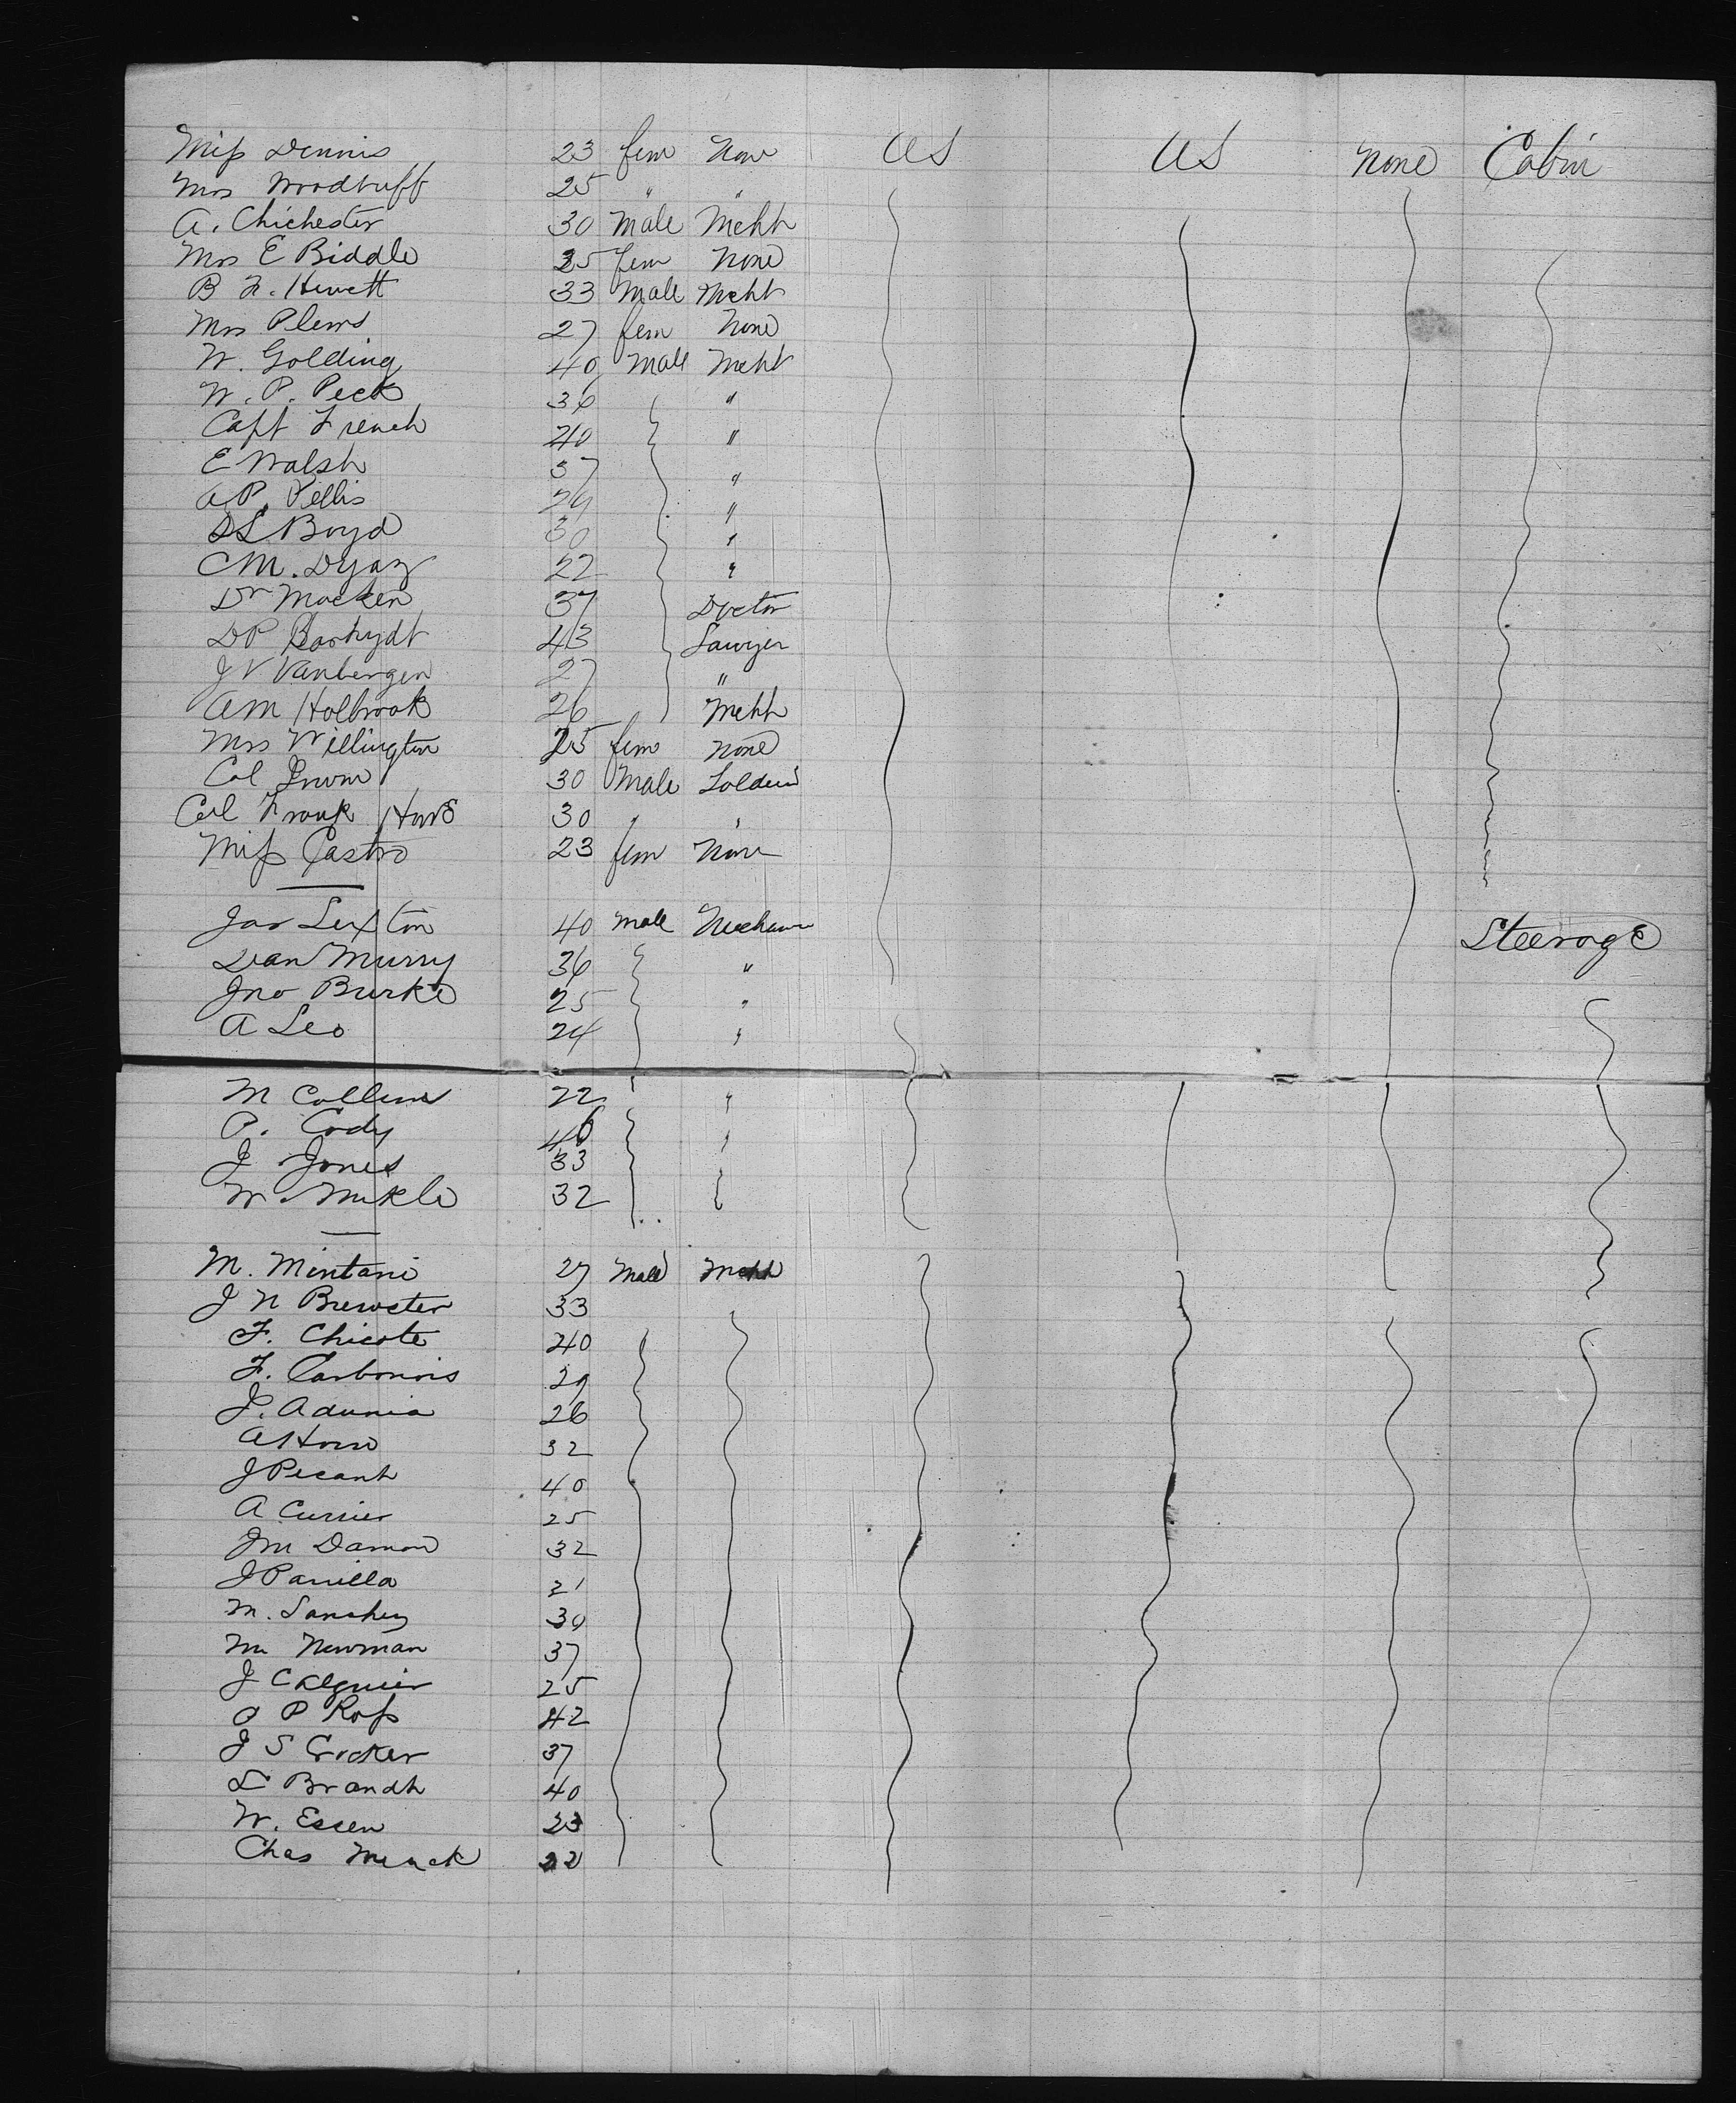 Miss Dennis 23 fem None US US None Cabin
Mrs Woodruff 25 " "
A. Chichester 30 Male Mcht
Mrs E Biddle 25 fem None
B F. Hewett 33 Male Mcht
Mrs Plews 27 fem None
W. Golding 40 Male Mcht
W. P. Peck 36 "
Capt French 40 "
E Walsh 37 "
A P. Pellis 29 "
S L Boyd 30 "
C M. Dyaz 22 "
Dr Macken 37 Doctor
D P Barhydt 43 Lawyer
J V Vanbergen 27 "
A M Holbrook 26 Mcht
Mrs Willington 25 fem None
Col 30 Male Soldier
Col Frank Howe 30 " "
Miss Castro 23 fem None
Jas Sexton 40 Male Mechanic Steerage
Dan Murry 36 "
Jno Burke 25 "
A Leo 24 "
M Collins 22 "
P. Cody 46 "
J Jones 33
W. Mikle 32
M. Mintani 27 Male Mcht
J N Brewster 33
F. Chicote 40
F. 29
J. Adunia 26
A Horn 32
J Pecant 40
A Currier 25
Jm Damon 32
J Parilla 21
M. Sanchez 30
M Newman 37
J C 25
O P Ross 42
J S Crocker 37
L Brandt 40
W. Essen 23
Chas Menck 22